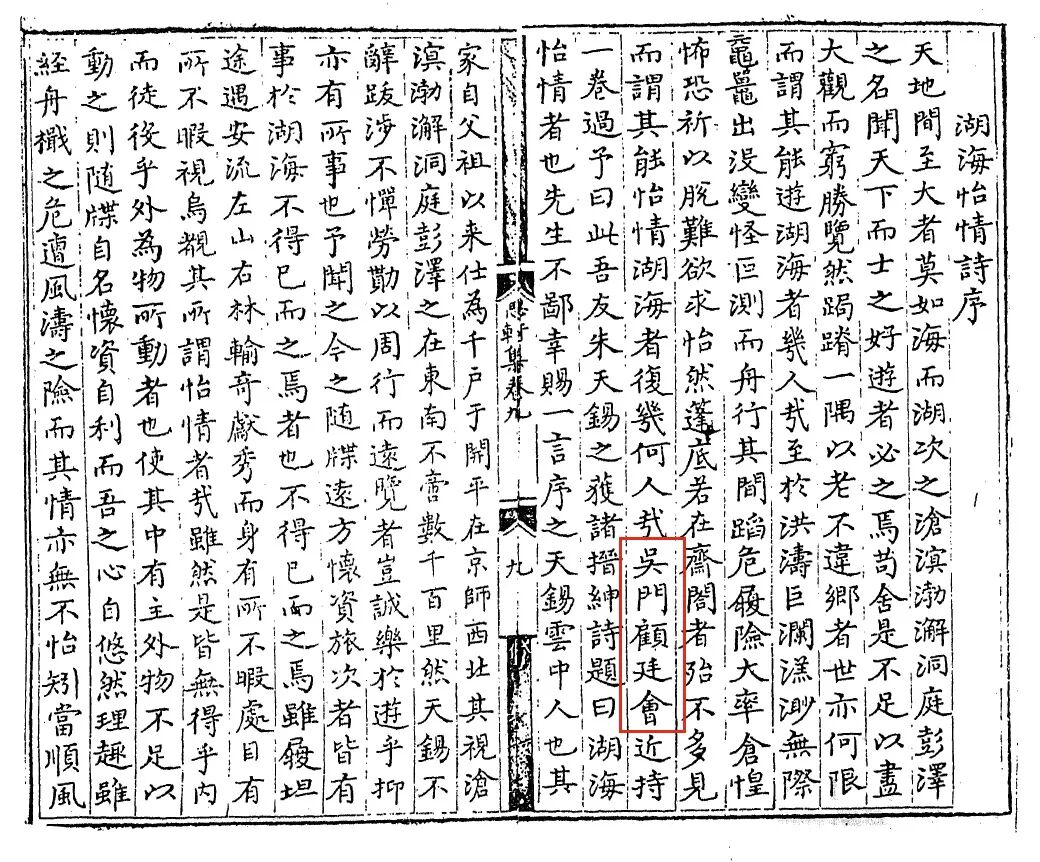 湖海怡情詩序
天地間至大者莫如海而湖次之滄溟渤澥洞庭彭澤
之名聞天下而士之好遊者必之焉苟舍是不足以盡
大觀而窮勝覽然跼蹐一隅以老不違鄉者世亦何限
而謂其能遊湖海者幾人㢤至於洪濤巨瀾渺無際
黿鼉出没變怪叵測而舟行其間蹈危履險大率倉惶
怖恐祈以脫難欲求怡然蓬底若在齋閤者殆不多見
而謂其能怡情湖海者復幾何人㢤吳門顧廷會近持
一卷過予曰此吾友朱天錫之獲諸搢紳詩題曰湖海
怡情者也先生不鄙幸賜一言序之天錫雲中人也其
思軒集卷九
九
家自父祖以来仕為千戸于開平在京師西北其視滄
溟渤澥洞庭彭澤之在東南不啻數千百里然天錫不
辭跋涉不憚勞勩以周行而遠覽者豈誠樂於遊乎抑
亦有所事也予聞之今之随牒遠方懷資旅次者皆有
事於湖海不得已而之焉者也不得已而之焉雖履坦
途遇安流左山右林輸竒獻秀而身有所不暇處目有
所不暇視烏覩其所謂怡情者㢤雖然是皆無得乎内
而徒役乎外為物所動者也使其中有主外物不足以
動之則随牒自名懷資自利而吾之心自悠然理趣雖
經舟檝之危遭風濤之險而其情亦無不怡矧當順風